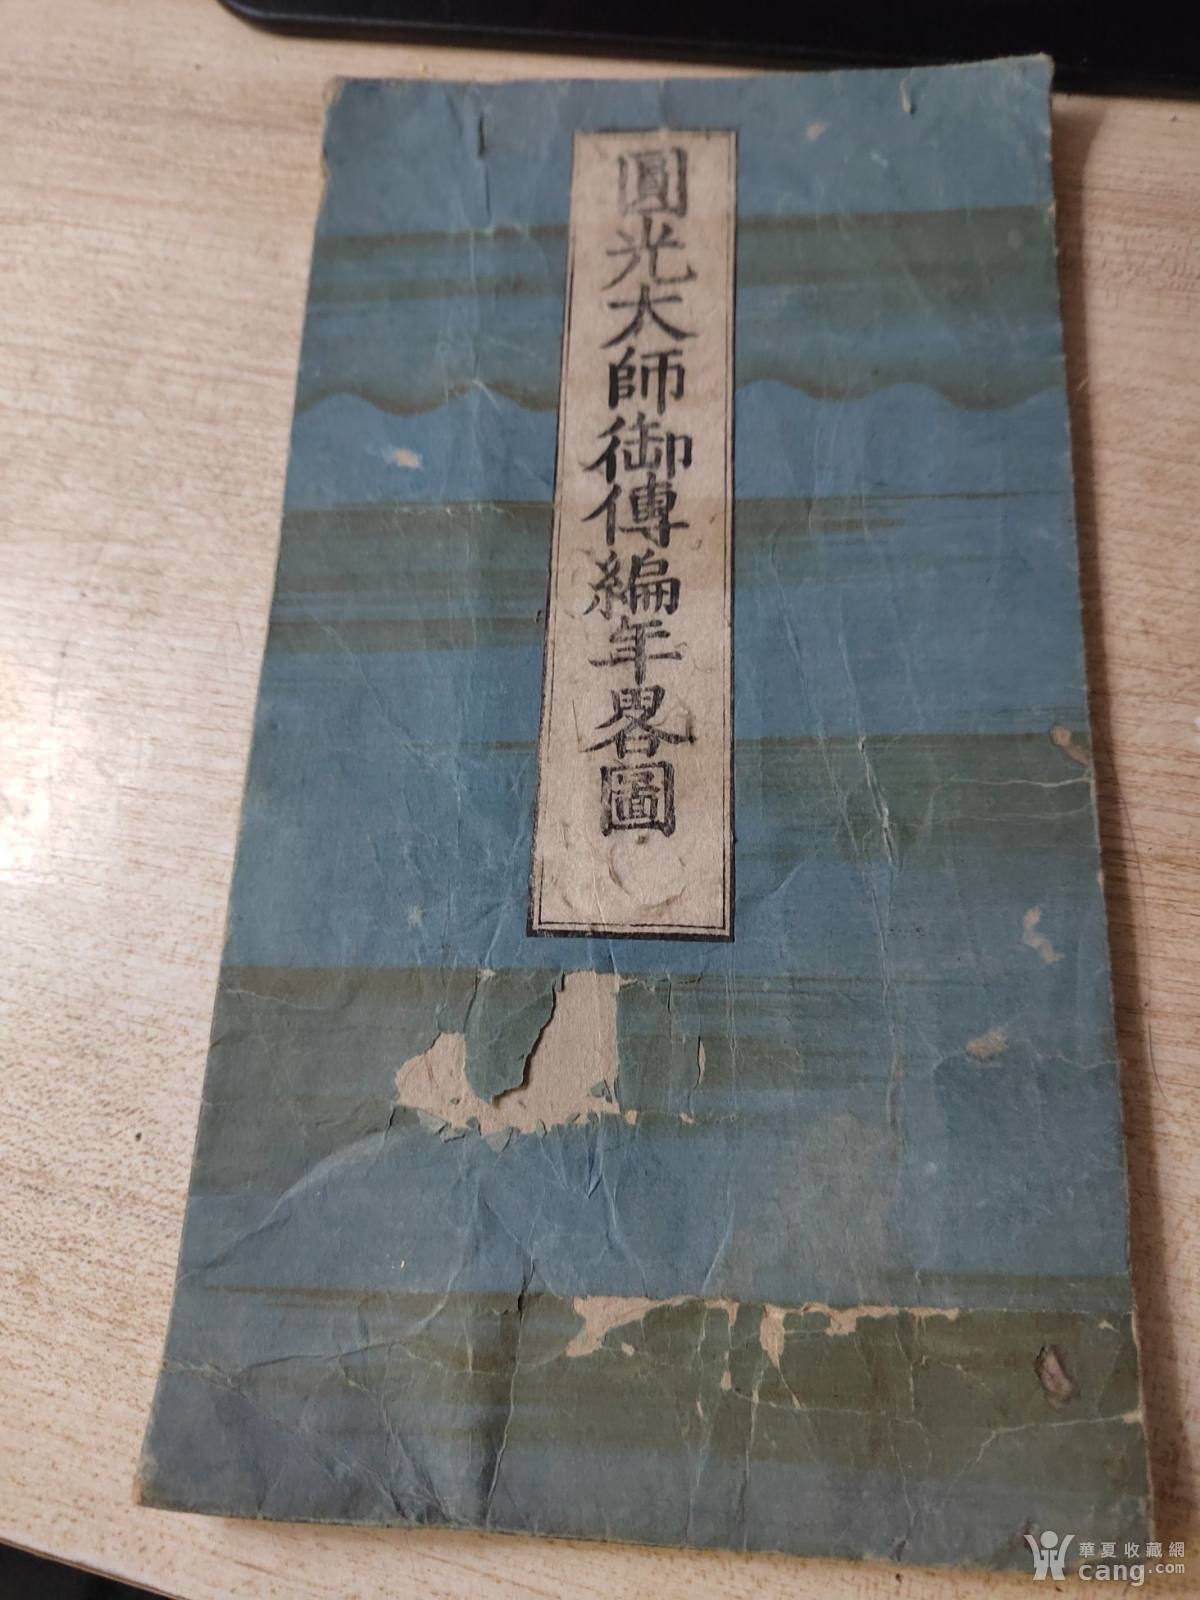 圓光大師御傳編年畧圖
華夏收藏網
cang.com